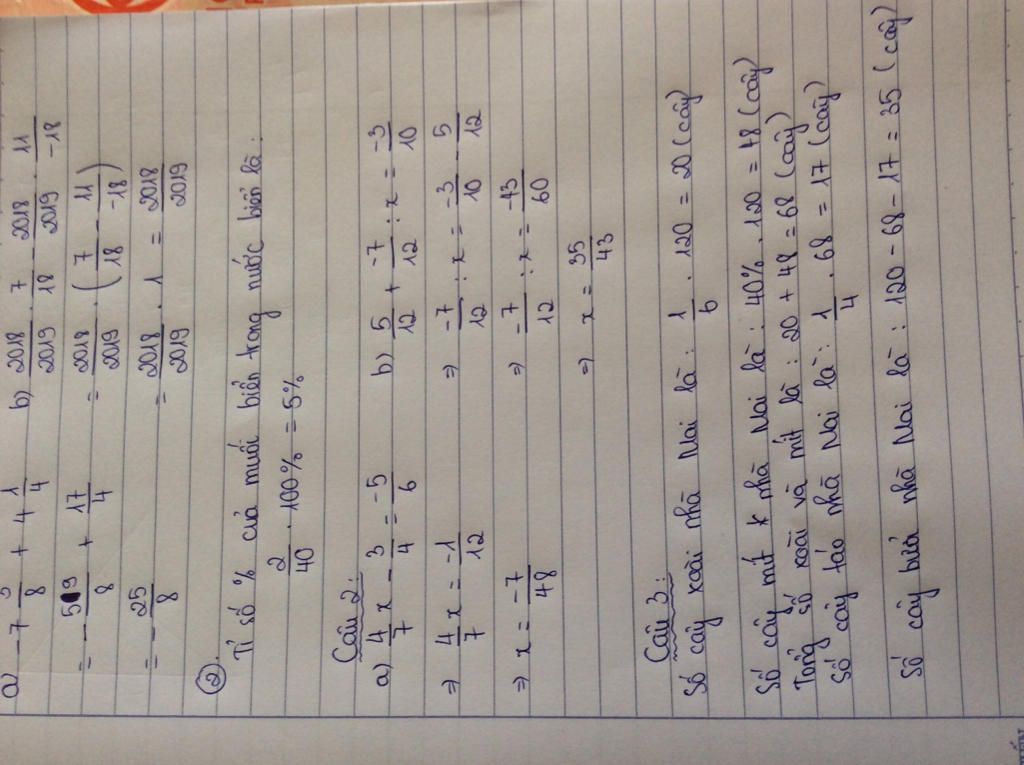 a) -7 3/8 + 4 1/4
= - 59/8 + 17/4
= - 25/8
b) 2018/2019 . 7/18 - 2018/2019 . 11/-18
= 2018/2019 . (7/18 - 11/-18)
= 2018/2019 . 1 = 2018/2019
②.
Tỉ số % của muối biển trong nước biển là :
2/40 . 100% = 5%
Câu 2:
a) 4/7 x - 3/4 = -5/6
=> 4/7 x = -1/12
=> x = -7/48
b) 5/12 + -7/12 : x = -3/10
=> -7/12 : x = -3/10 - 5/12
=> -7/12 : x = -43/60
=> x = 35/43
Câu 3:
Số cây xoài nhà Mai là : 1/6 . 120 = 20 (cây)
Số cây mít nhà Mai là : 40% . 120 = 48 (cây)
Tổng số xoài và mít là : 20 + 48 = 68 (cây)
Số cây táo nhà Mai là : 1/4 . 68 = 17 (cây)
Số cây bưởi nhà Mai là : 120 - 68 - 17 = 35 (cây)